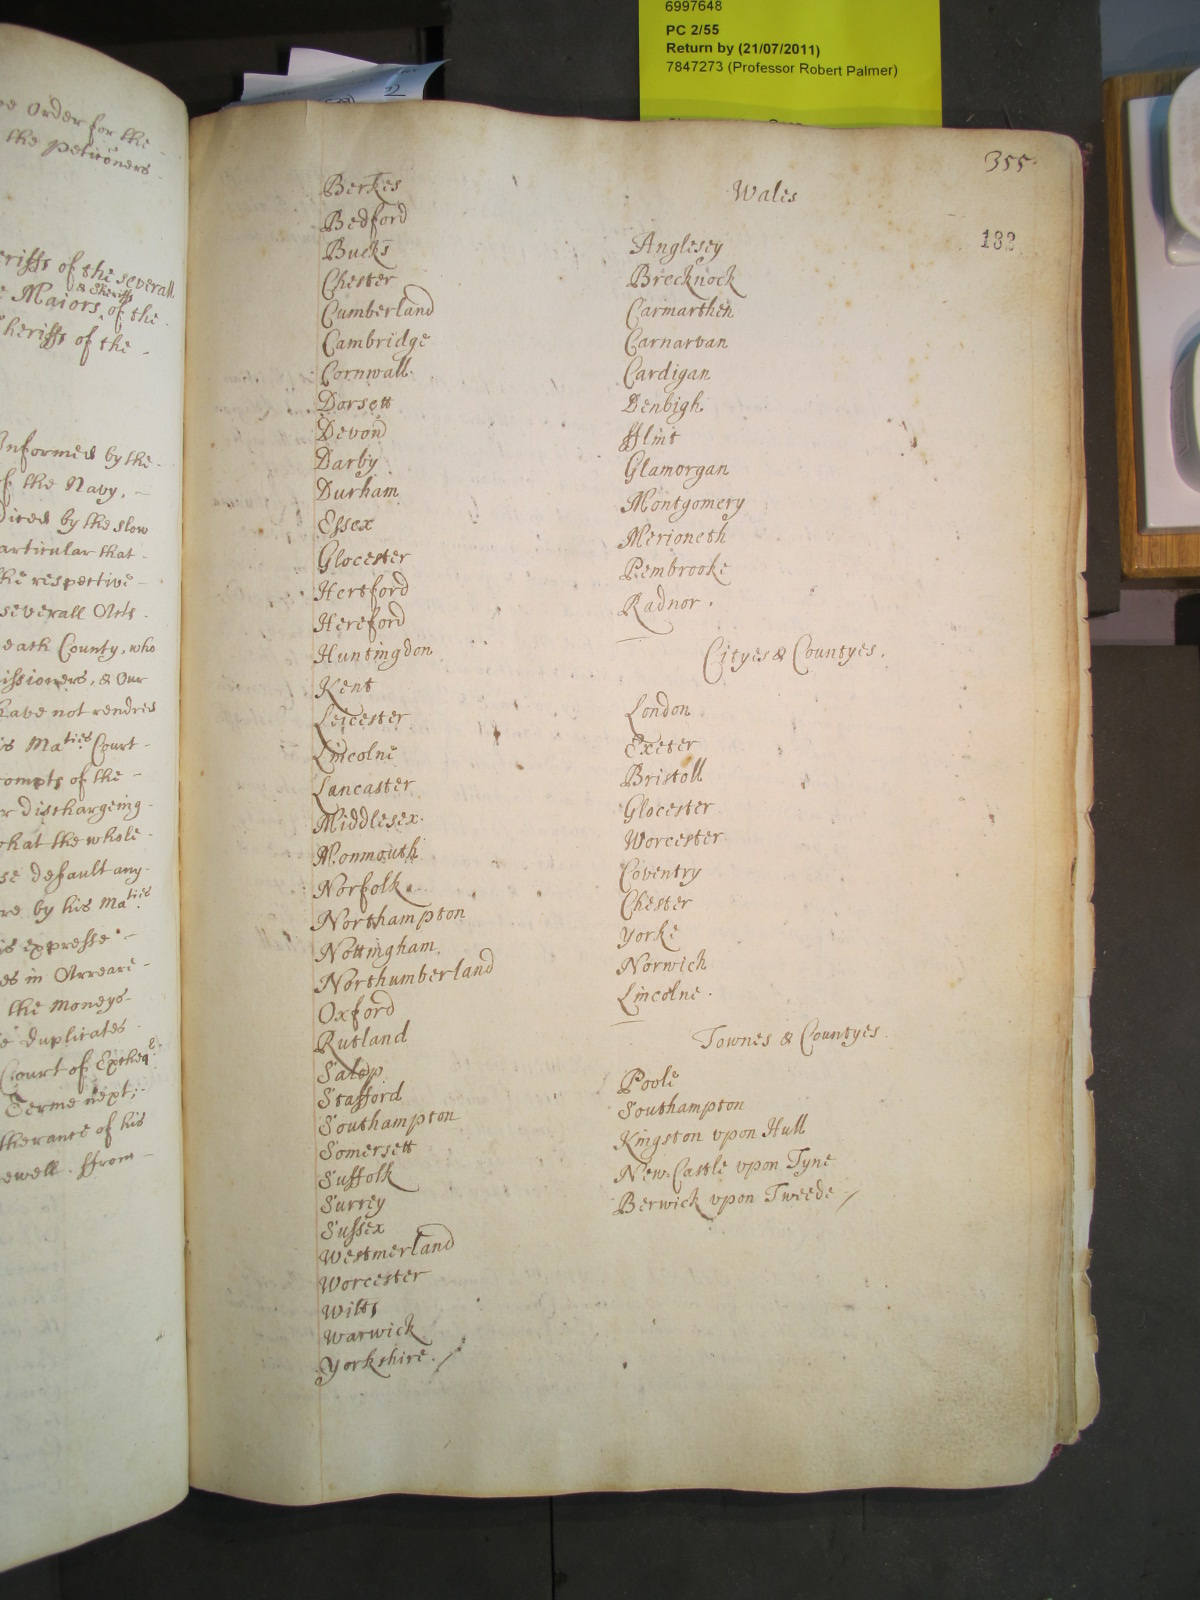 6997648
PC 2/55
Return by (21/07/2011)
7847273 (Professor Robert Palmer)
Order for the
the petitioners
eriffs of the severall
& Sheriffs
Maiors, of the
heriffs of the
Informed by the
of the Navy,
by the slow
articular that
the respective
severall Acts
each County, who
issioners, & Our
have not rendred
is Maties Court
compts of the
or dischargeing
that the whole
default any
re by his Maties
is expresse
es in Arreare
the Moneys
duplicates
Court of Excheqr
Terme next;
therance of his
ewell. ffrom
355
182
Berkes
Bedford
Bucks
Chester
Cumberland
Cambridge
Cornwall
Dorsett
Devon
Darby
Durham
Essex
Glocester
Hertford
Hereford
Huntingdon
Kent
Leicester
Lincolne
Lancaster
Middlesex
Monmouth
Norfolk
Northampton
Nottingham
Northumberland
Oxford
Rutland
Salop
Stafford
Southampton
Somersett
Suffolk
Surrey
Sussex
Westmerland
Worcester
Wilts
Warwick
Yorkshire. /
Wales
Anglesey
Brecknock
Carmarthen
Carnarvan
Cardigan
Denbigh
fflint
Glamorgan
Montgomery
Merioneth
Pembrooke
Radnor.
Cityes & Countyes.
London
Exeter
Bristoll
Glocester
Worcester
Coventry
Chester
Yorke
Norwich
Lincolne.
Townes & Countyes
Poole
Southampton
Kingston vpon Hull
New-Castle vpon Tyne
Berwick vpon Tweede /